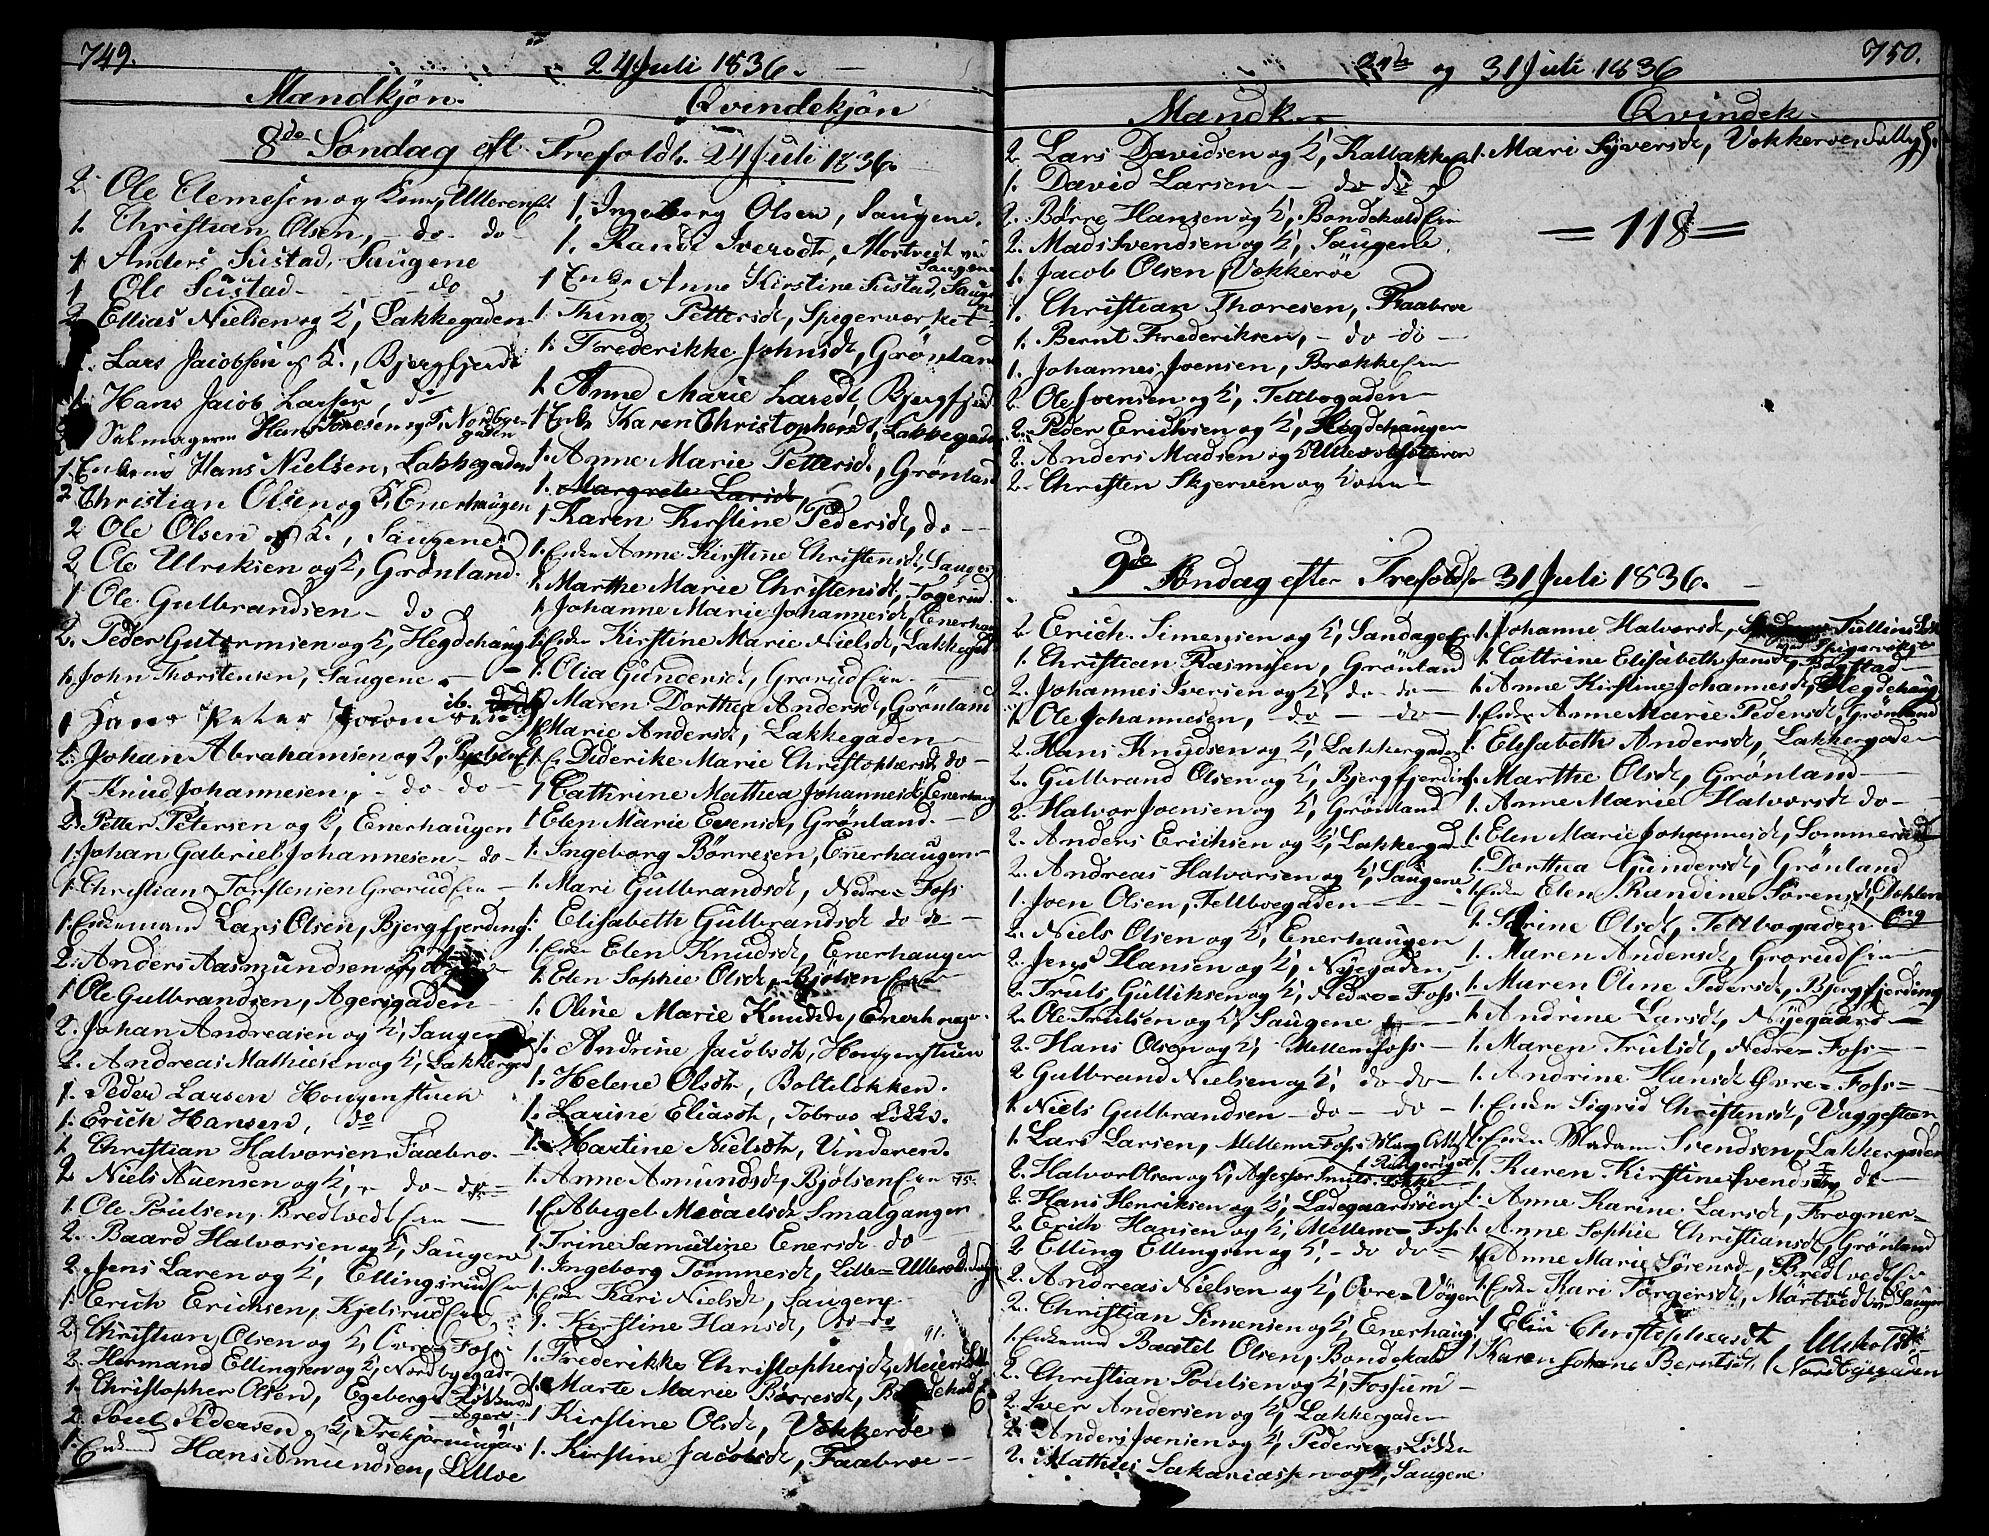 749.
24 Juli 1836.
Mandkjön.
Qvindekjön
8de Søndag eft Trefoldh. 24 Juli 1836.
2. Ole Clemesen og Kone, Ulleren E.
1. Christian Olsen, - do - do -
1 Anders Sustad, Saugene
1 Ole Sustad - - do
2 Ellias Nielsen og K, Lakkegaden
Lars Jacobsen og K., Bjergfjerd
1 Hans Jacob Larsen, do
Salmagerm Hans Toresen og K, Nordbye-
gaden
1. Enkem Hans Nielsen, Lakkegaden
2 Christian Olsen og K, Enerhaugen
2 Ole Olsen og K., Saugene
2 Ole Ulriksen og K, Grønland.
1 Ole Gulbrandsen - do
2. Peder Gutormsen og K, Hegdehaug
1. John Thorstensen, Saugene. -
1 Hans Peter ib.
2. Johan Abrahamsen og K,
1 Knud Johannesen, - do - do -
2. Petter Petersen og K, Enerhaugen
1. Johan Gabriel Johannesen - do -
1. Christian Torstensen Grorud Eie -
1. Enkemand Lars Olsen, Bjergfjerding.
2. Anders Aasmundsen og K,
1 Ole Gulbrandsen, Agersgaden -
2. Johan Andreasen og K, Saugene
2. Andreas Mathiesen og K, Lakkegad
1. Peder Larsen Hougenstuen
1. Erich Hansen, do
1 Christian Halvorsen Faabro. -
2 Niels Auensen og K, - do - do -
1. Ole Poulsen, Bredtvedt Eie -
2. Baard Halvorsen og K, Saugene
2. Jens Laren og K, Ellingsrud Eie
1. Erich Erichsen, Kjelsrud Eie
2. Christian Olsen og K, Øvre Foss
2. Hermand Ellingsen og K, Nordbyegade
1. Christopher Olsen, Egebergs Løkke
Ager -
2. Poul Pedersen og K, Trekjørningen
1. Enkemd Hans Amundsen, Lilloe
1. Ingeborg Olsen, Saugene.
1. Randi Iversdt, Mortvedt ved
Saugene
1 Enke Anne Kirstine Sustad, Saugen
1. Trine Pettersd, Spigerværket
1. Frederikke Johnsdt, Grønland
1. Anne Marie Larsdt, Bjergfjerd
1 Enke Karen Christophersdt, Lakkegaden
1. Anne Marie Pettersd., Grønland
1. Margrete Larsdt,
1 Karen Kirstine Pedersdt, do -
1. Enke Anne Kirstine Christensdt, Saugen
1. Marthe Marie Christensdt,
1. Johanne Marie Johannesdt, Enerhaug
1. Enke Kirstine Marie Nielsdt, Lakkegad
1. Olia Gundersdt, Grorud Eie. -
1. Maren Dorthea Andersdt, Grønland
1. Marie Andersdt, Lakkegaden -
1. E. Diderike Marie Christophersdt do -
1 Cathrine Mathea Johannesdt, Enerhaug
1 Elen Marie Evensdt, Grønland. -
1. Ingeborg Börresen, Enerhaugen -
1. Mari Gulbrandsdt, Nedre = Foss
1. Elisabeth Gulbrandsdt do do -
1. Enke Elen Knudsdt, Enerhaugen
1. Elen Sophie Olsdt, Bjølsen Eie -
1. Oline Marie Knudsdt, Enerhaug.
1. Andrine Jacobsdt, Hougenstuen
1. Helene Olsdtr, Bolteløkken.
1. Larine Eliasdt, Tobros Løkke.
1. Martine Nielsdtr, Vinderen.
1. Anne Amundsdt, Bjølsen Eie
1. E. Abigel Micaelsdt Smalgangen
1. Trine Samuline Enersdt do -
1. Ingeborg Tommesdt, Lille = Ullevold
1. Enke Kari Nielsdt, Saugene
1. Kirstine Hansdt, do do
91.
1. Frederikke Christophersdt, Meiers
1. Marte Marie Börresdt, Bondekald E
1 Kirstine Olsdt, Vækkerøe
1. Kirstine Jacobsdt, Faabroe -
750.
24de og 31 Juli 1836
Mandk -
Qvindek -
2. Lars Davidsen og K, Kaltbakken
1. David Larsen - do do
2. Börre Hansen og K, Bondekald Eie
2. Mads Svendsen og K, Saugene.
1. Jacob Olsen, Vækkerøe
1. Christian Thoresen, Faabroe
1. Bernt Frederiksen, - do - do -
1. Johannes Joensen, Brække Eie -
2. Ole Joensen og K, Teltbogaden -
2. Peder Erichsen og K, Hegdehaugen
2. Anders Madsen og K
2. Christen Skjerven og Kone -
1. Mari Syversdt, Vækkerøe,
= 118 =
9de Søndag efter Trefoldh 31 Juli 1836.
2 Erich Simensen og K, Sandager
1. Christian Rasmussen, Grönland
2. Johannes Iversen og K, do - do -
1. Ole Johannesen, - do - do -
2. Hans Knudsen og K, Lakkergaden
2. Gulbrand Olsen og K, Bjergfjerding
2. Halvor Joensen og K, Grönland
2. Anders Erichsen og K, Lakkergad
2. Andreas Halvorsen og K, Saugene
1. Joen Olsen, Teltboegaden -
2. Niels Olsen og K, Enerhaugen
2. Jens Hansen og K, Nyegaden -
2. Truls Gulliksen og K, Nedre = Foss
2. Ole Trulsen og K, Saugene -
2. Hans Olsen og K, Mellem Foss -
2 Gulbrand Nielsen og K, do - do -
1 Niels Gulbrandsen - do - do -
1. Lars Larsen, Mellem Foss
2. Halvor Olsen og K, Assessor Løkke
2. Hans Henriksen og K, Ladegaardsöen
2. Erich Hansen og K, Mellem = Foss
2 Elling Ellingsen og K - do do =
2. Andreas Nielsen og K, Øvre = Vöyen
2. Christian Simensen og K, Enerhaug
1. Enkemand Baatel Olsen, Bondekald
2. Christian Poulsen og K, Fossum -
2. Iver Andersen og K, Lakkergaden
2. Anders Joensen og K, Pedersens Løkke
2. Mathias Sakariassen og K, Saugene
1. Johanne Halvorsdt, Tullins Løk
ved Spigerverket
1. Cattrine Elisabeth Jansdt, Bogstad -
1. Anne Kirstine Johannesdt, Hegdehaug
1. Enke Anne Marie Pedersdt, Grönland
1. Elisabeth Andersdt, Lakkergaden
1. Marthe Olsdt, Grønland -
1. Anne Marie Halvorsdt do -
1. Elen Marie Johannesdt, Sommer
1. Dorthea Gundersdt, Grønland
1. Enke Elen Randine Sörensdt, Dahlens
Eng
1. Serine Olsdt, Teltbogaden
1. Maren Andersdt, Grorud Eie -
1. Maren Oline Pedersdt, Bjergfjerding
1. Andrine Larsdt, Nyegaden -
1. Maren Trulsdt, Nedre = Foss -
1. Andrine Hansdt Øvre = Foss -
1. Enke Sigrid Christensdt, Vaggestuen
1. Enke Madam Svendsen, Lakkergaden
1. Karen Kirstine Svendsdt, do -
1. Anne Karine Larsdt, Frogner -
1. Anne Sophie Christiansdt, Grönland
1. Anne Marie Sörensdt, Bredtvedt Eie
1. Enke Kari Torgersdt, Mortvedt ved Saugen
1 Elin Christophersdt
1 Karen Johane Berntsdt. Nordbyegaden